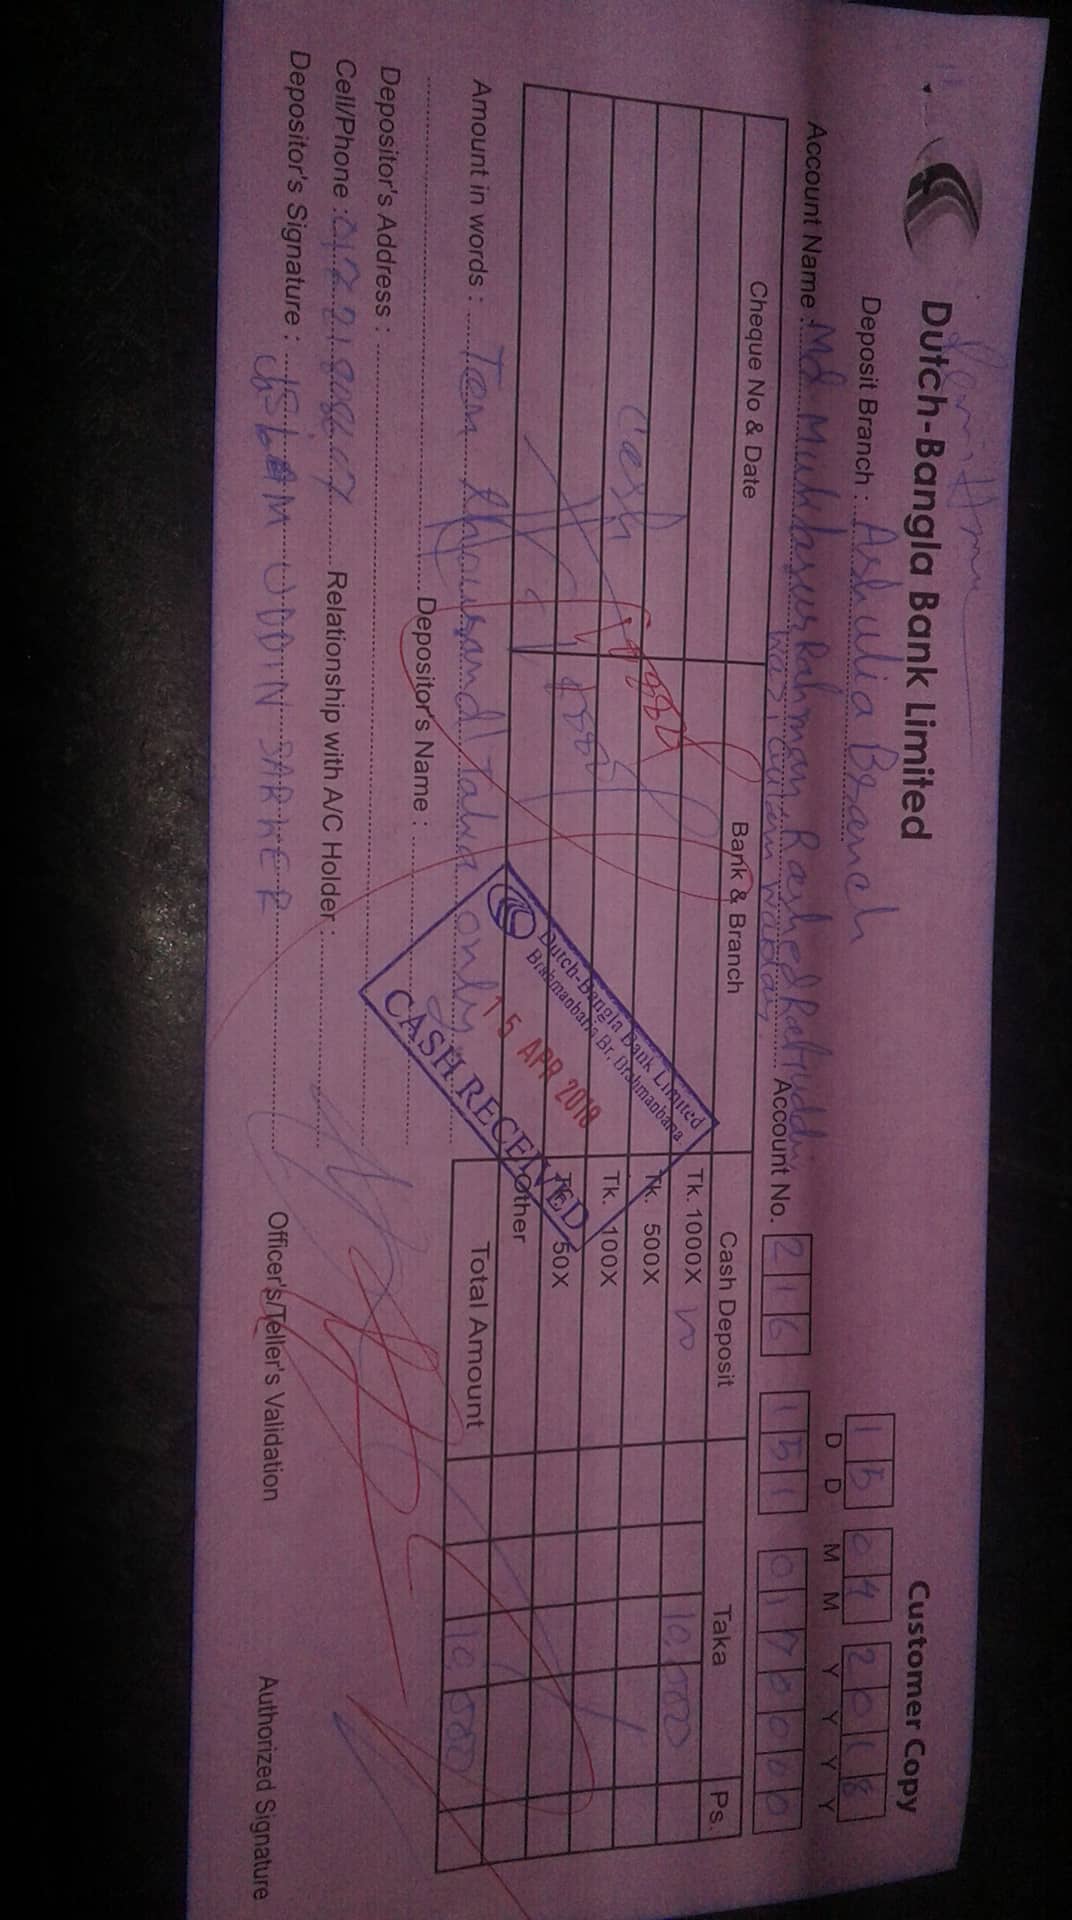 Dutch-Bangla Bank Limited
Customer Copy
Deposit Branch : Ashulia Branch
15 04 2018
D D M M Y Y Y Y
Account Name : Md. Rahman, Rashed
Account No. 216 151 0170000
Cheque No & Date Bank & Branch Cash Deposit Taka Ps.
Tk. 1000X 10 10,000
Tk. 500X
Tk. 100X
Cash
Tk. 50X
Other
Dutch-Bangla Bank Limited
Brahmanbaria Br, Brahmanbaria
15 APR 2018
CASH RECEIVED
Total Amount 10,000
Amount in words : Ten thousand Taka only
Depositor's Name :
Depositor's Address :
Cell/Phone : Relationship with A/C Holder :
Depositor's Signature : ISLAM UDDIN SARKER
Officer's/Teller's Validation
Authorized Signature